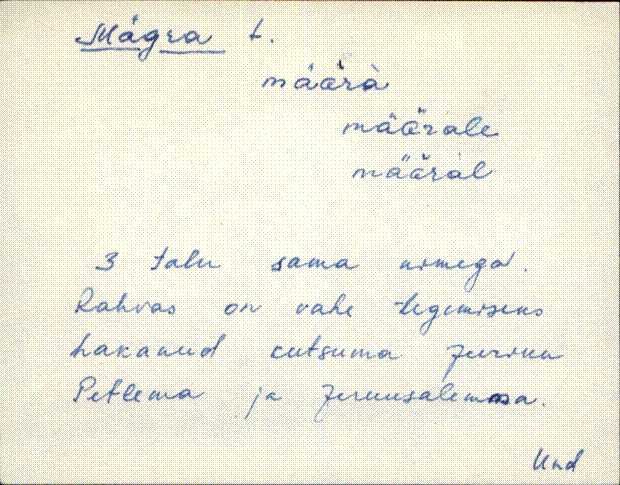 Mägra t.
määrà
määrale
määral
3 talu sama nimega.
Rahvas on vahe tegemiseks
hakanud cutsuma
Petlema ja Jeruusalemma.
Und